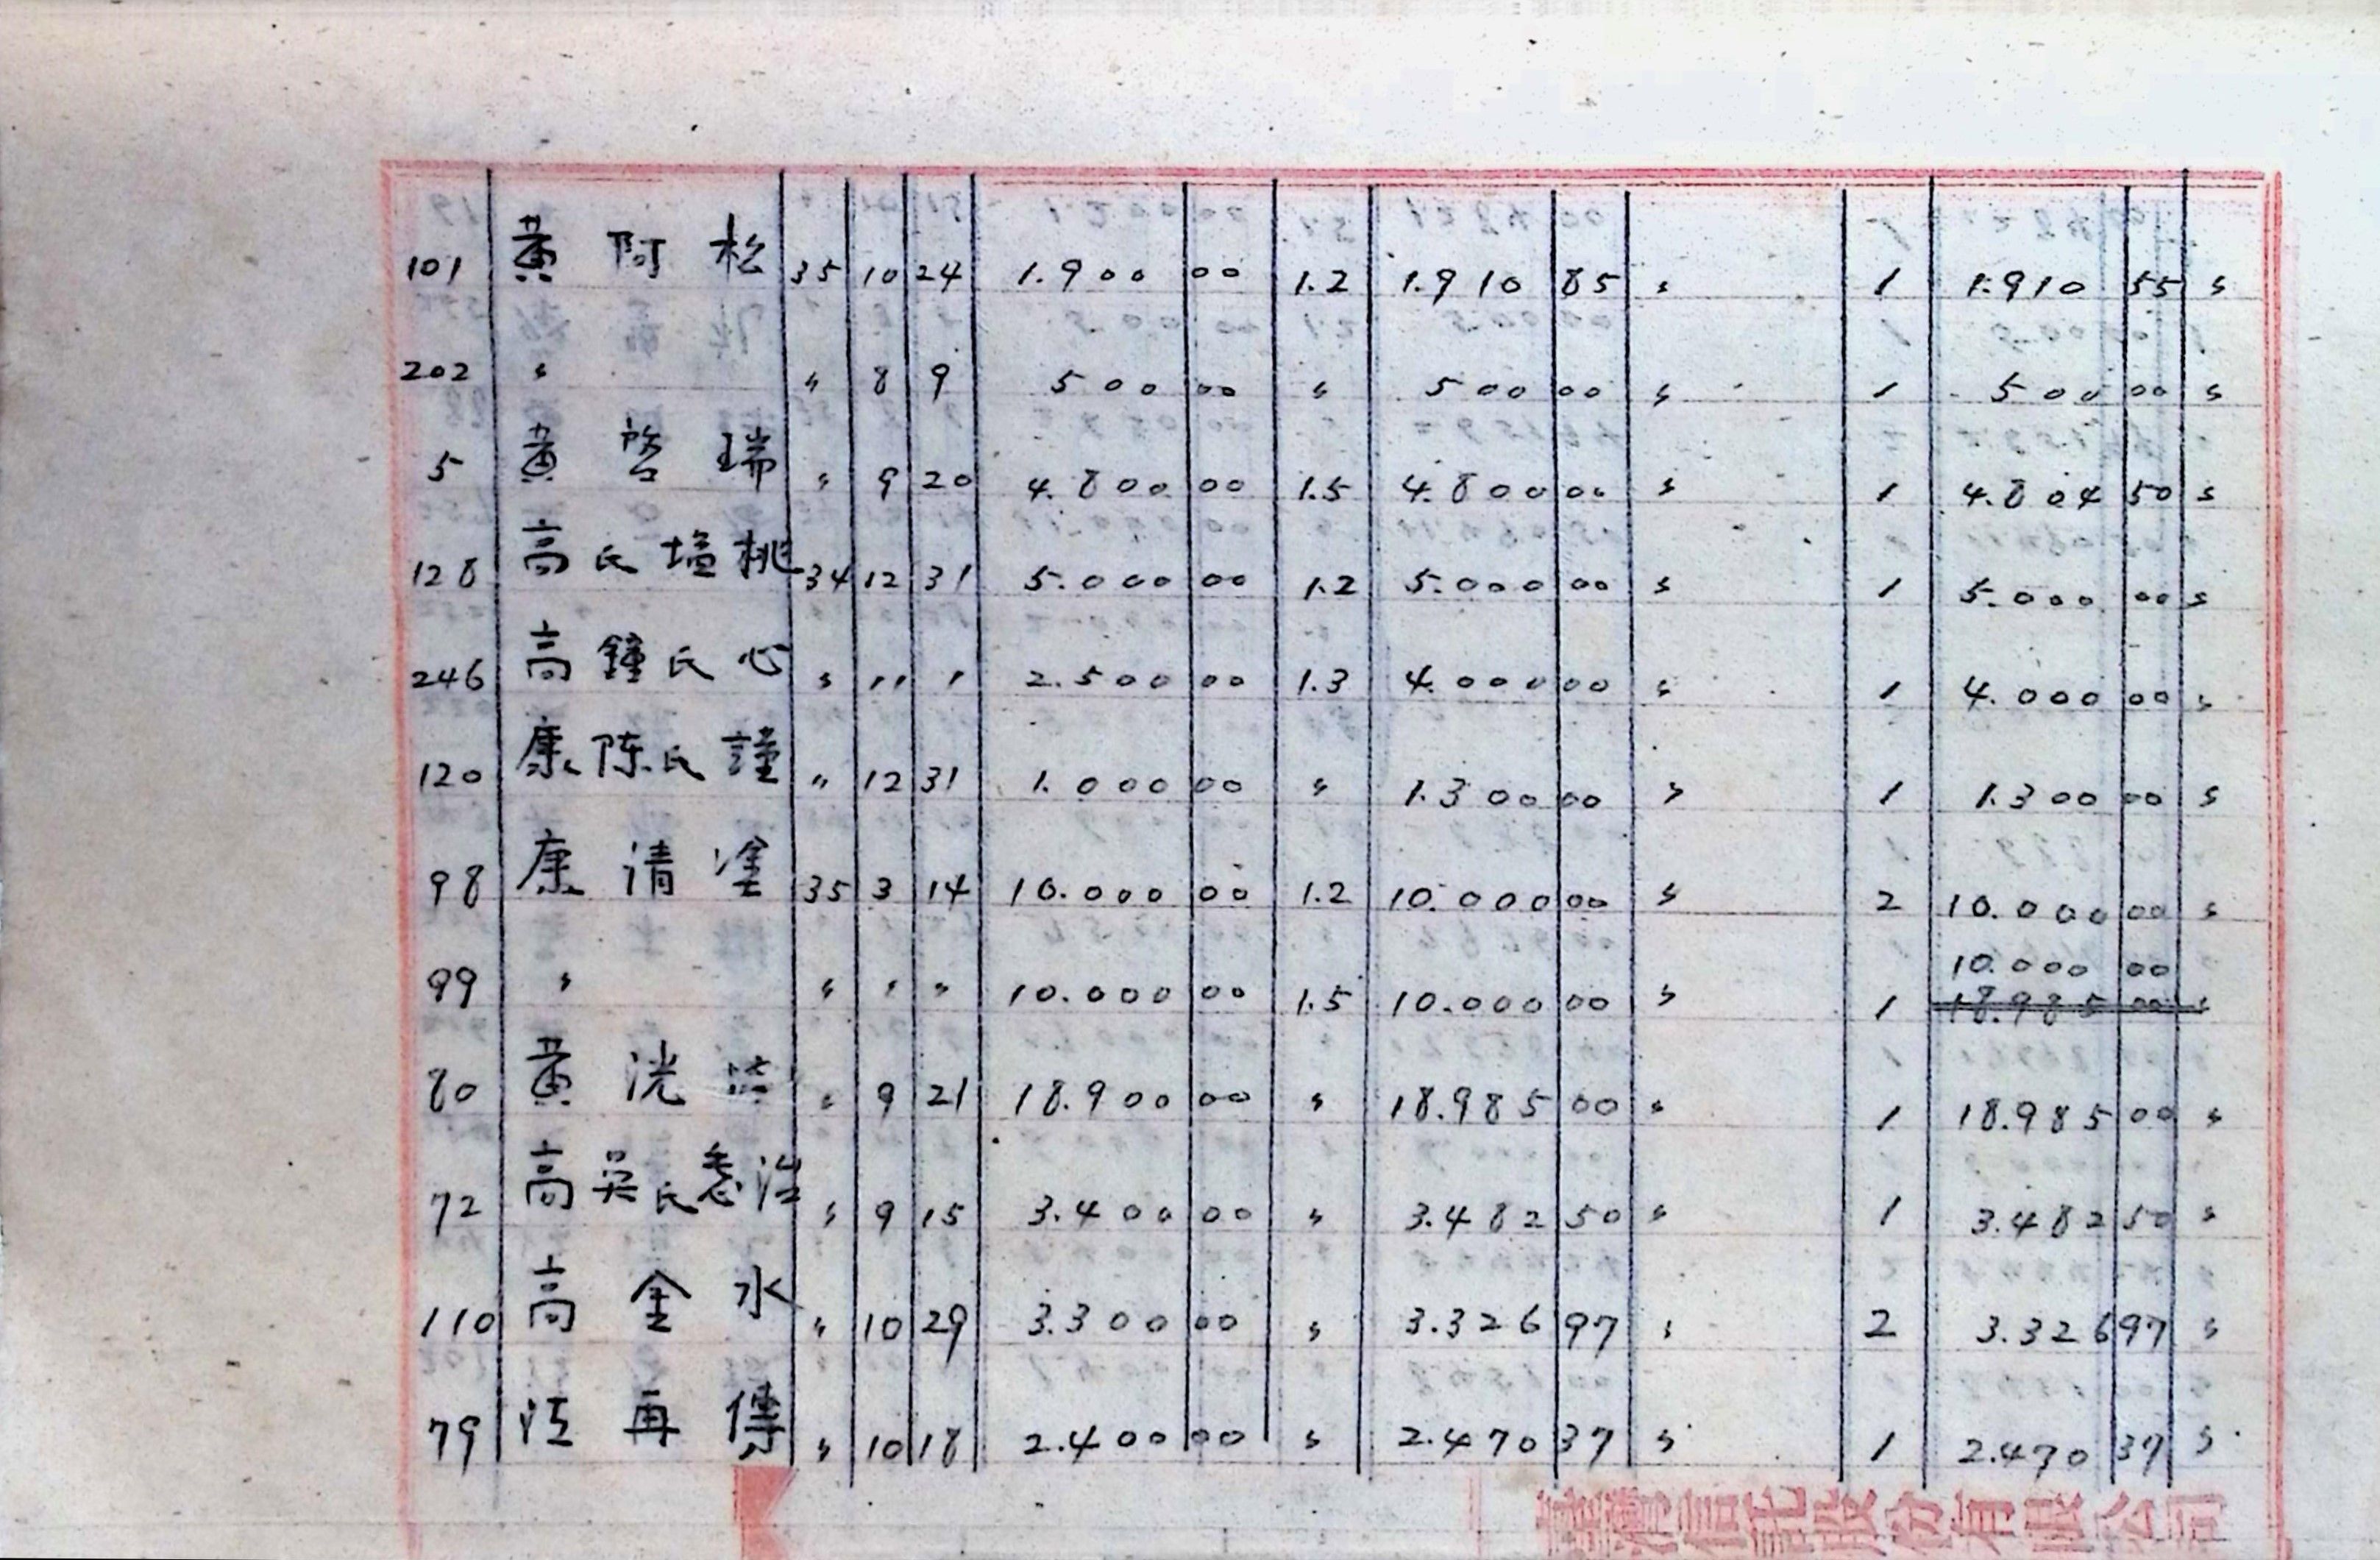 101 黃阿松 35 10 24 1.900 00 1.2 1.910 85 〃 1 1.910 55 〃
202 〃 〃 8 9 500 00 〃 500 00 〃 1 500 00 〃
5 黃啓瑞 〃 9 20 4.800 00 1.5 4.800 00 〃 1 4.804 50 〃
128 高氏塩桃 34 12 31 5.000 00 1.2 5.000 00 〃 1 5.000 00 〃
246 高鐘氏心 〃 〃 〃 2.500 00 1.3 4.000 00 〃 1 4.000 00 〃
120 康陈氏謹 〃 12 31 1.000 00 〃 1.300 00 〃 1 1.300 00 〃
98 康清塗 35 3 14 10.000 00 1.2 10.000 00 〃 2 10.000 00 〃
10.000 00
99 〃 〃 〃 〃 10.000 00 1.5 10.000 00 〃 1 18.985 00 〃
80 黃洸 〃 9 21 18.900 00 〃 18.985 00 〃 1 18.985 00 〃
72 高吳氏治 〃 9 15 3.400 00 〃 3.482 50 〃 1 3.482 50 〃
110 高金水 〃 10 29 3.300 00 〃 3.326 97 〃 2 3.326 97 〃
79 江再傳 〃 10 18 2.400 00 〃 2.470 37 〃 1 2.470 37 〃
臺灣信託股份有限公司